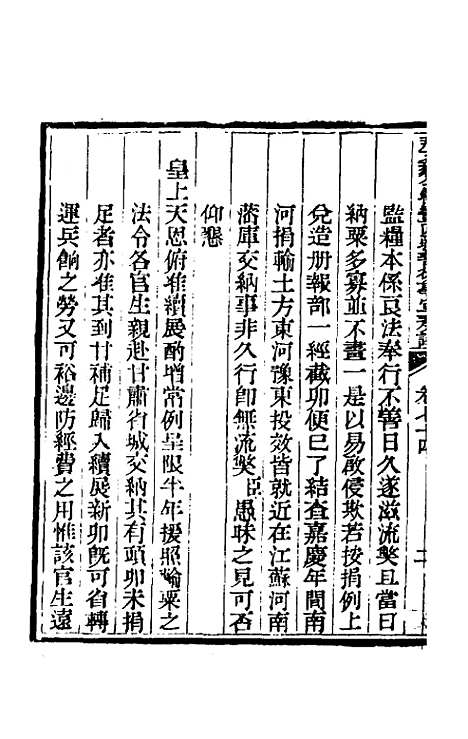 監糧本係良法奉行不善日久遂滋流獘且當日
納粟多寡並不畫一是以易啟侵欺若按捐例上
兌造册報部一經截卯便已了結查嘉慶年間南
河捐輸土方東河豫東投效皆就近在江蘇河南
藩庫交納事非久行卽無流獘臣愚昧之見可否
仰懇
皇上天恩俯准續展酌增常例呈限半年援照輸粟之
法令各官生親赴甘肅省城交納其有頭卯未捐
足者亦准其到甘補足歸入續展新卯旣可省轉
運兵餉之勞又可裕邊防經費之用惟該官生遠
卷七十四
二